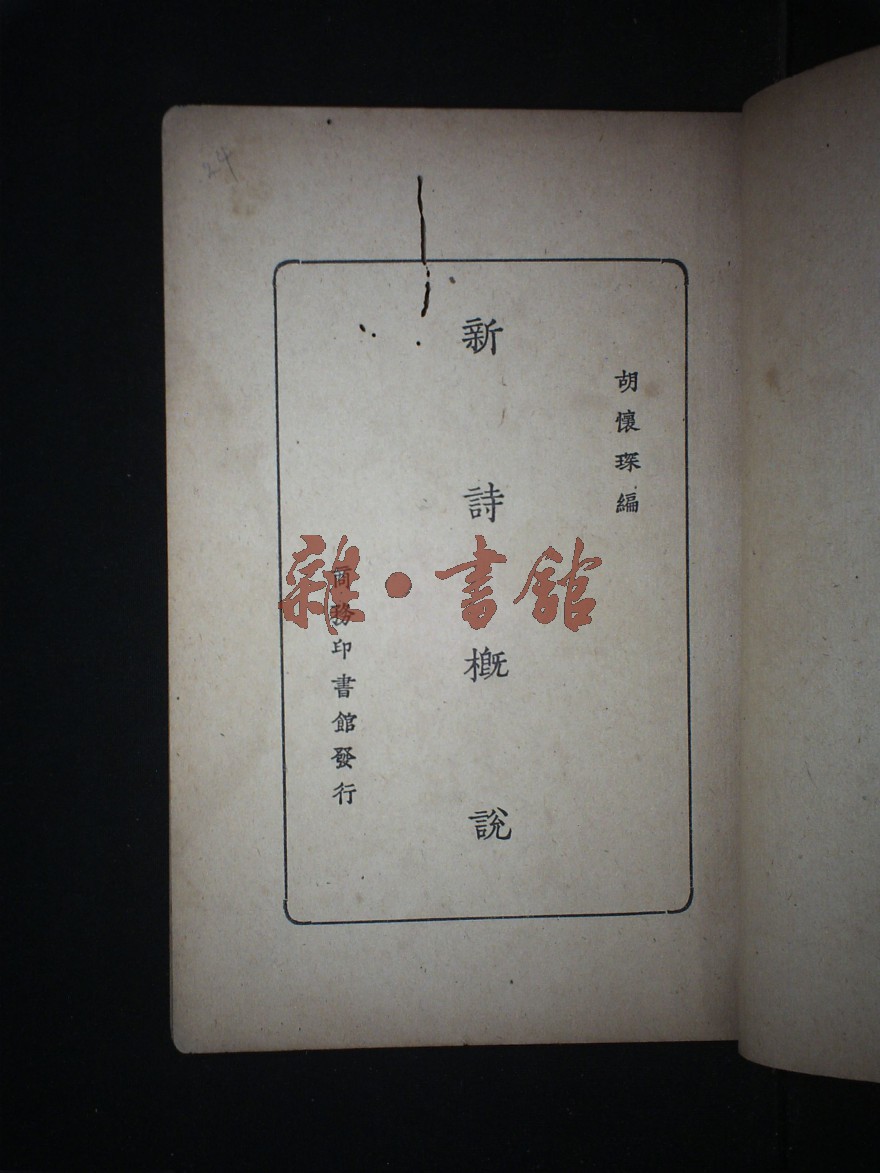 胡懷琛編
新詩概說
商務印書館發行
雜·書館
24